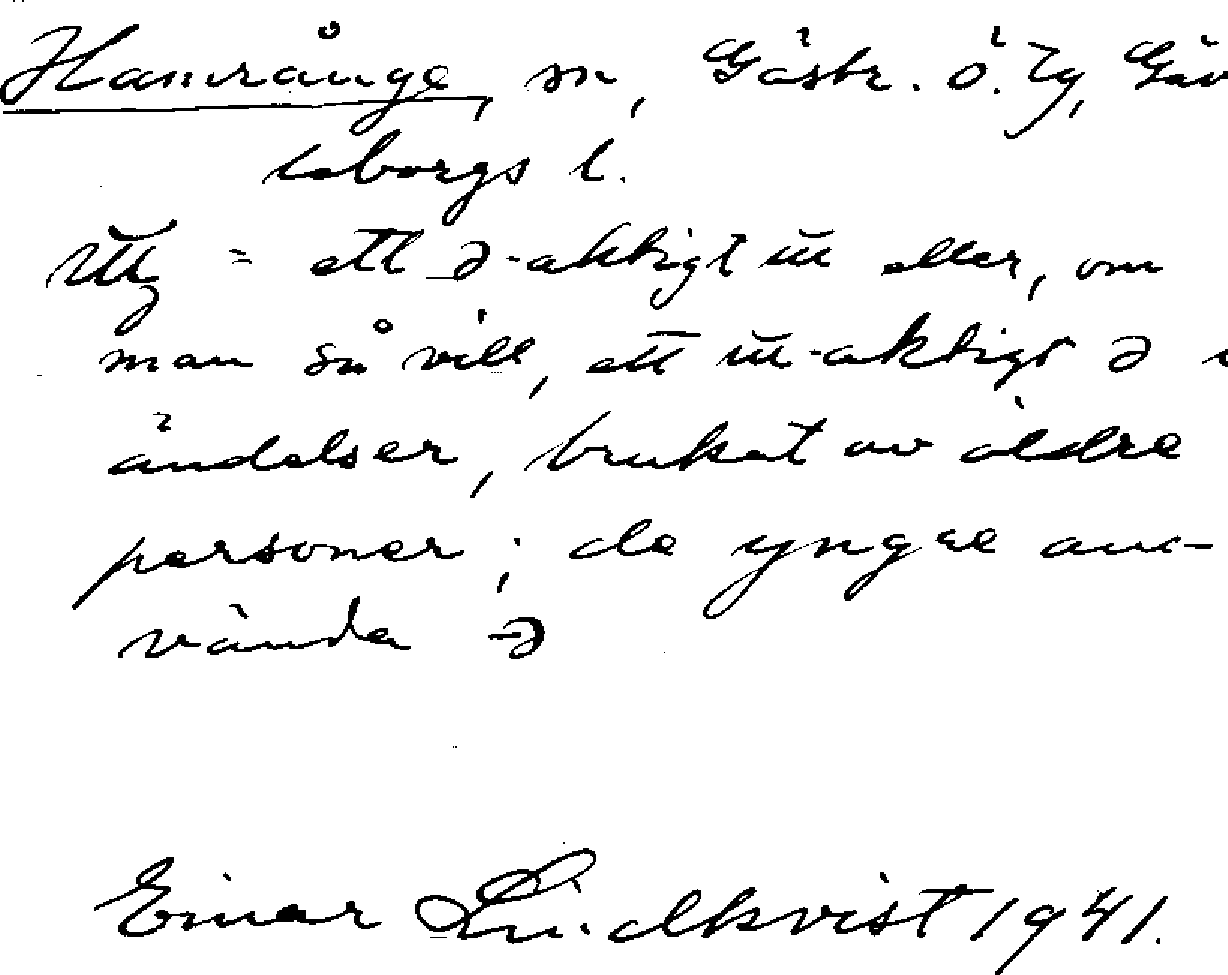 Hamrånge, sn, Gästr. ö. tg, Gäv
leborgs l.
= ett ə-aktigt ŭ eller, om
man så vill, ett ŭ-aktigt ə i
ändelser, brukat av äldre
personer; de yngre an-
vända ə
Einar Lindkvist 1941.